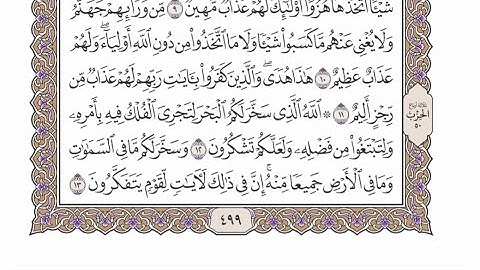 شَيْـًٔا ٱتَّخَذَهَا هُزُوًا ۚ أُو۟لَـٰٓئِكَ لَهُمْ عَذَابٌ مُّهِينٌ ٩ مِّن وَرَآئِهِمْ جَهَنَّمُ ۖ
وَلَا يُغْنِى عَنْهُم مَّا كَسَبُوا۟ شَيْـًٔا وَلَا مَا ٱتَّخَذُوا۟ مِن دُونِ ٱللَّهِ أَوْلِيَآءَ ۖ وَلَهُمْ
عَذَابٌ عَظِيمٌ ١٠ هَـٰذَا هُدًى ۖ وَٱلَّذِينَ كَفَرُوا۟ بِـَٔايَـٰتِ رَبِّهِمْ لَهُمْ عَذَابٌ مِّن
رِّجْزٍ أَلِيمٌ ١١ ۞ ٱللَّهُ ٱلَّذِى سَخَّرَ لَكُمُ ٱلْبَحْرَ لِتَجْرِىَ ٱلْفُلْكُ فِيهِ بِأَمْرِهِۦ
وَلِتَبْتَغُوا۟ مِن فَضْلِهِۦ وَلَعَلَّكُمْ تَشْكُرُونَ ١٢ وَسَخَّرَ لَكُم مَّا فِى ٱلسَّمَـٰوَٰتِ
وَمَا فِى ٱلْأَرْضِ جَمِيعًا مِّنْهُ ۚ إِنَّ فِى ذَٰلِكَ لَـَٔايَـٰتٍ لِّقَوْمٍ يَتَفَكَّرُونَ ١٣
٤٩٩
الحِزْب
٥٠